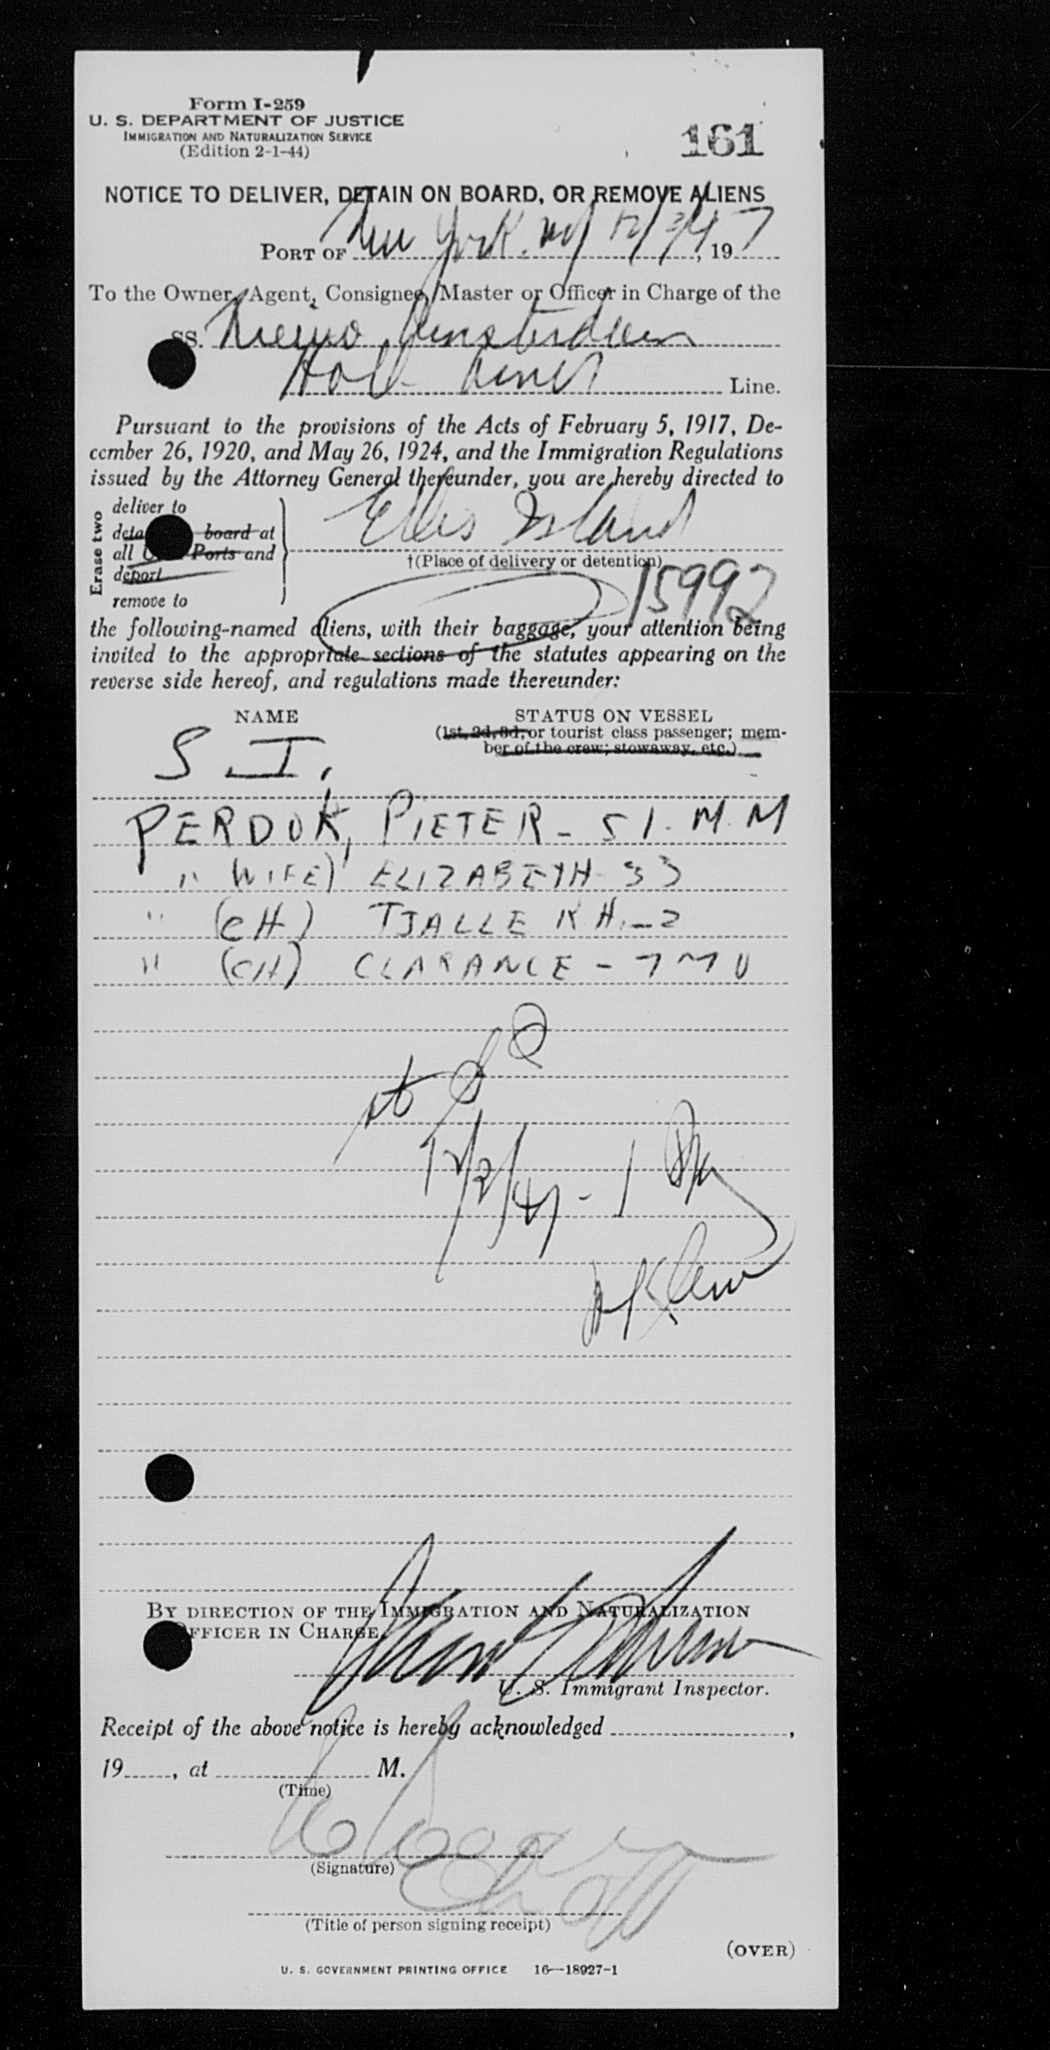 Form I-259
U. S. DEPARTMENT OF JUSTICE
IMMIGRATION AND NATURALIZATION SERVICE
(Edition 2-1-44)
161
NOTICE TO DELIVER, DETAIN ON BOARD, OR REMOVE ALIENS
PORT OF New York. NY 12/2/47, 19
To the Owner, Agent, Consignee, Master or Officer in Charge of the
SS. Nieuw Amsterdam
Holl Amer Line.
Pursuant to the provisions of the Acts of February 5, 1917, De-
cember 26, 1920, and May 26, 1924, and the Immigration Regulations
issued by the Attorney General thereunder, you are hereby directed to
Erase two
deliver to
board at
all Ports and
deport
remove to
Ellis Island
†(Place of delivery or detention)
15992
the following-named aliens, with their baggage, your attention being
invited to the appropriate sections of the statutes appearing on the
reverse side hereof, and regulations made thereunder:
NAME
STATUS ON VESSEL
(1st, 2d, 3d, or tourist class passenger; mem-
ber of the crew; stowaway, etc.)
S I.
PERDOK, PIETER - 51. M. M
" WIFE) ELIZABETH 33
" (CH) TJALLE K H. - 2
" (CH) CLARANCE - 7 MO
12/2/47 - 1
BY DIRECTION OF THE IMMIGRATION AND NATURALIZATION
OFFICER IN CHARGE.
U. S. Immigrant Inspector.
Receipt of the above notice is hereby acknowledged ,
19 , at M.
(Time)
(Signature)
(Title of person signing receipt)
(OVER)
U. S. GOVERNMENT PRINTING OFFICE 16—18927-1